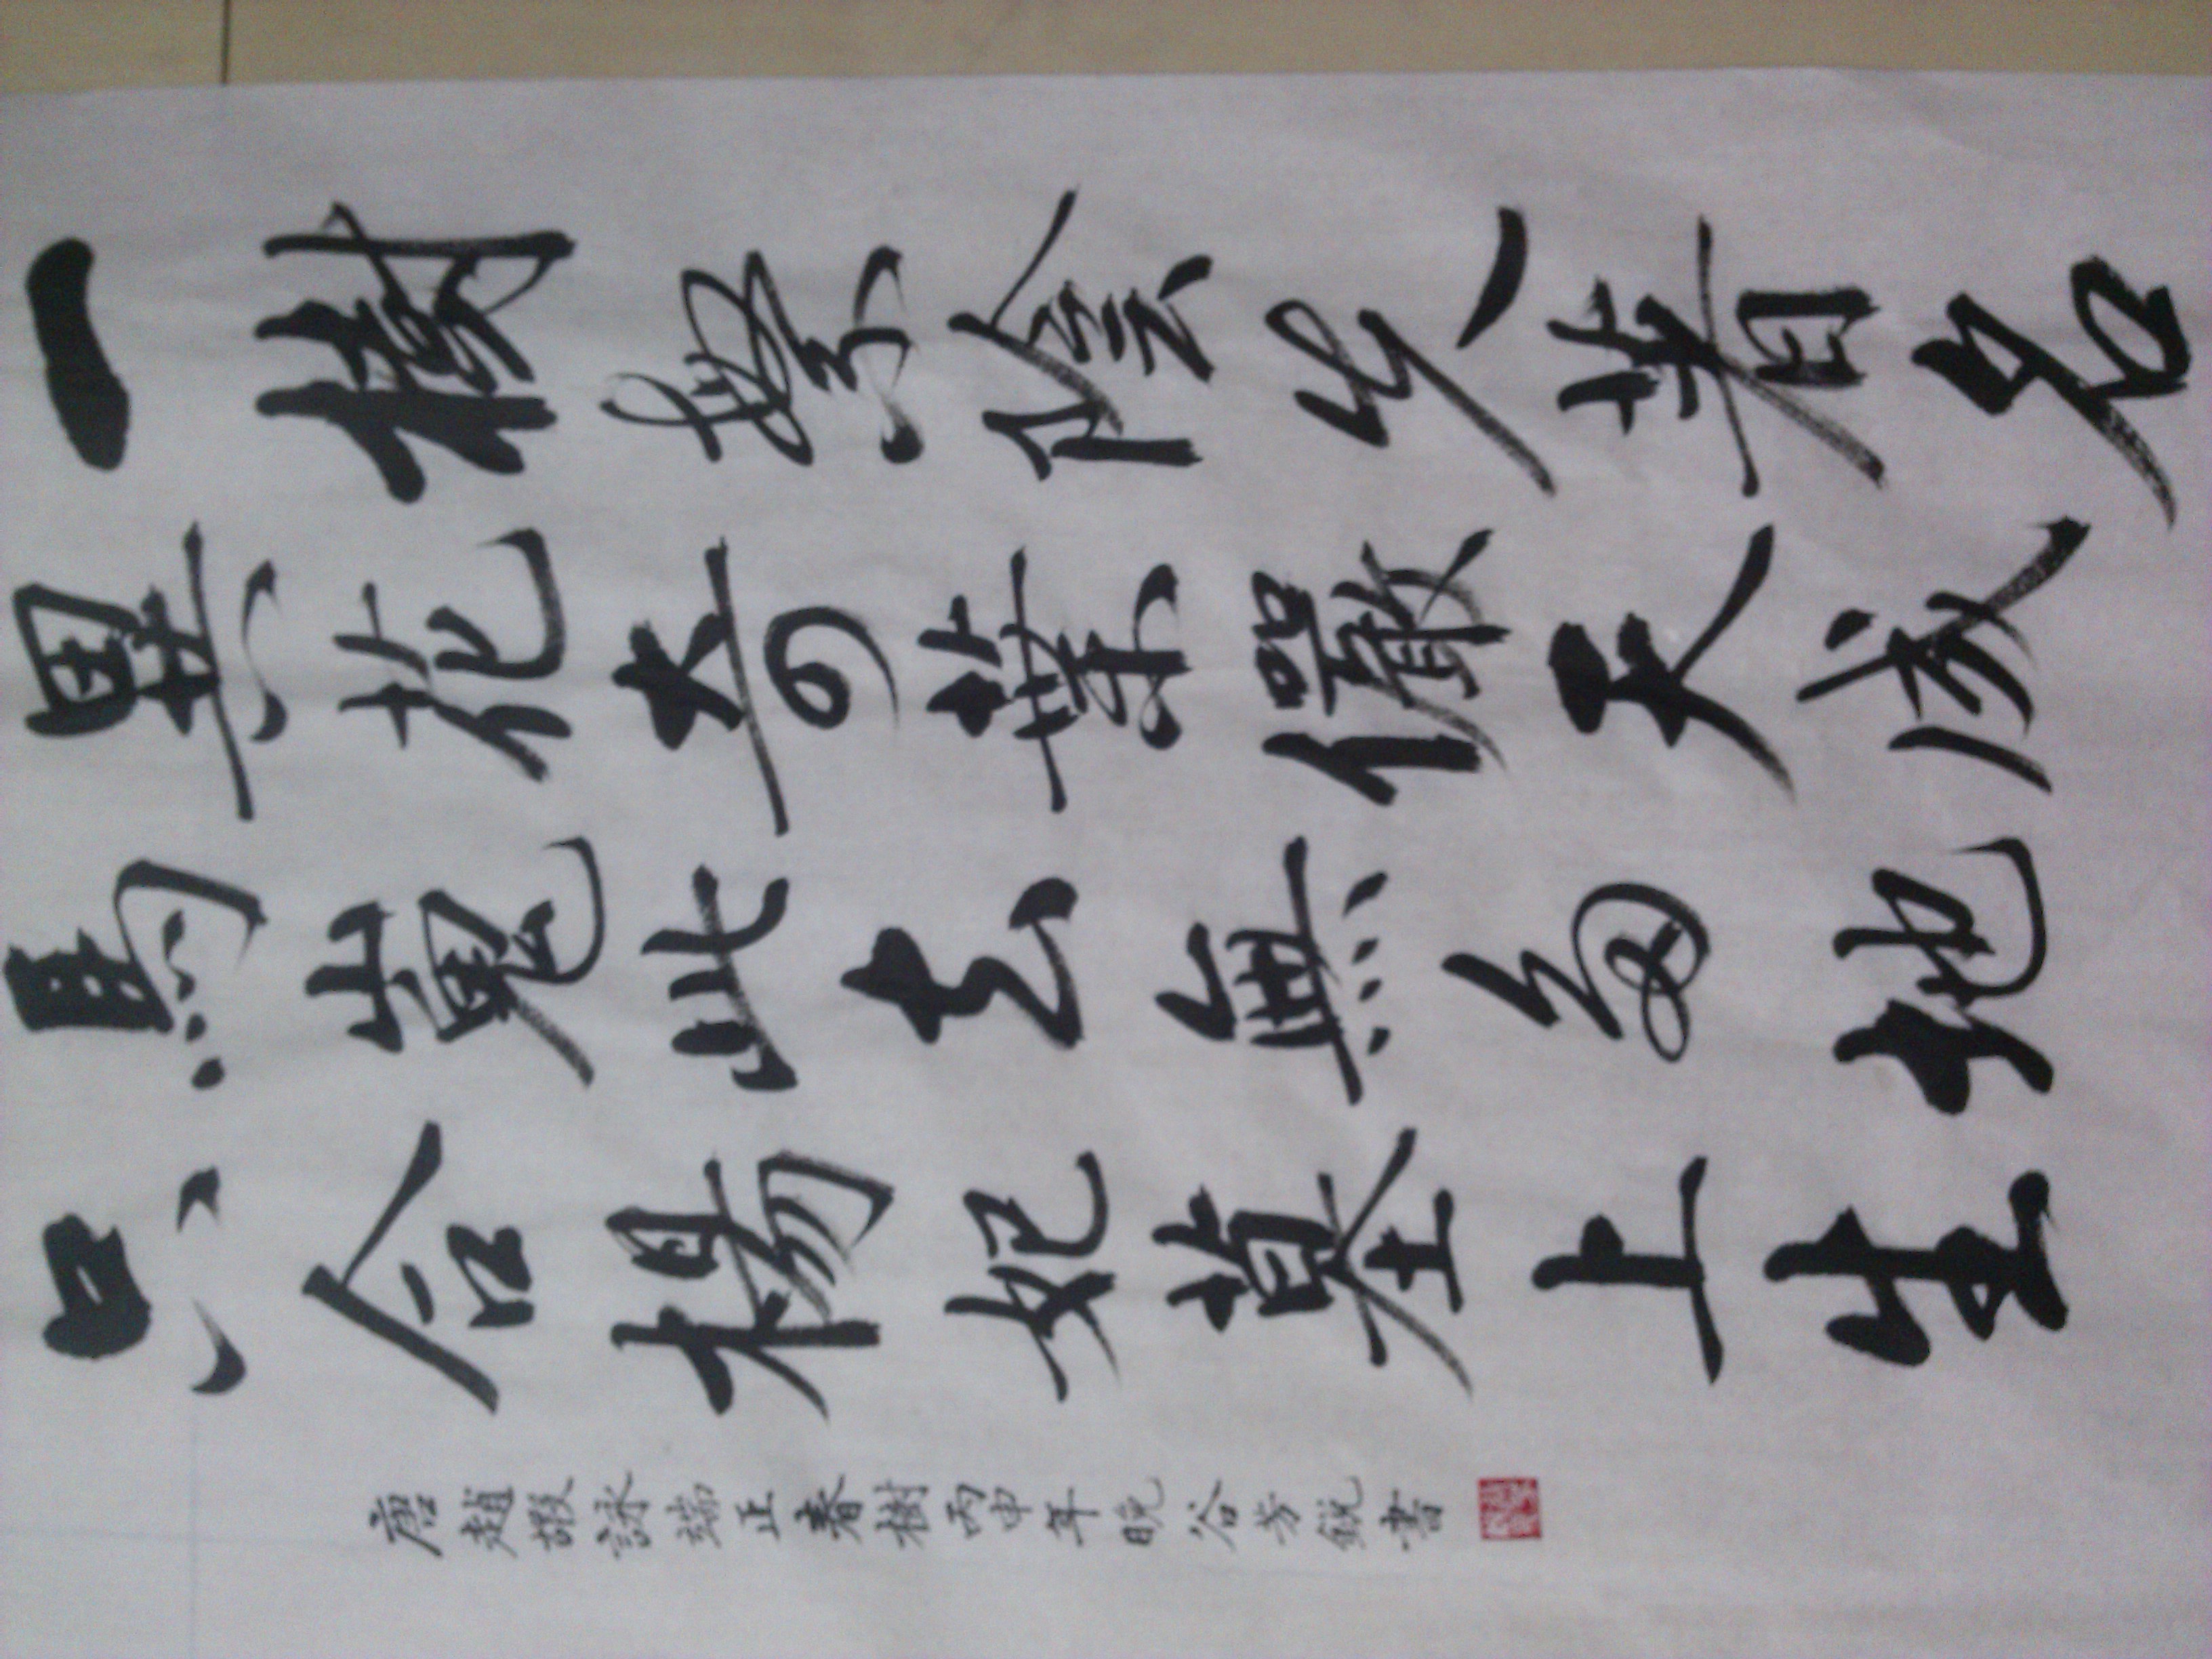 一樹繁陰先著名
異花奇葉儼天成
馬嵬此去無多地
只合楊妃墓上生
唐趙嘏詠端正春樹丙申年晚谷芳銳書